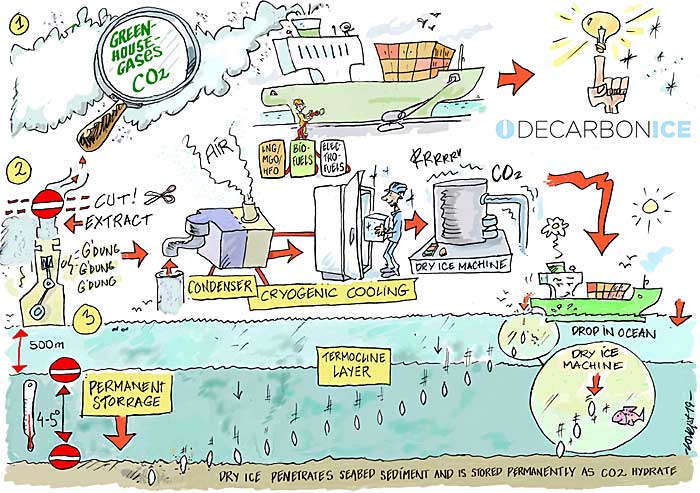 1
GREEN-
HOUSE-
GASES
CO2
LNG/
MGO/
HFO
BIO-
FUELS
ELEC-
TRO-
FUELS
DECARBONICE
2
CUT!
EXTRACT
G'DUNG
G'DUNG
G'DUNG
AIR
CONDENSER
CRYOGENIC COOLING
RRRRRR
CO2
DRY ICE MACHINE
3
500m
4-5°
PERMANENT
STORRAGE
TERMOCLINE
LAYER
DROP IN OCEAN
DRY ICE
MACHINE
DRY ICE PENETRATES SEABED SEDIMENT AND IS STORED PERMANENTLY AS CO2 HYDRATE